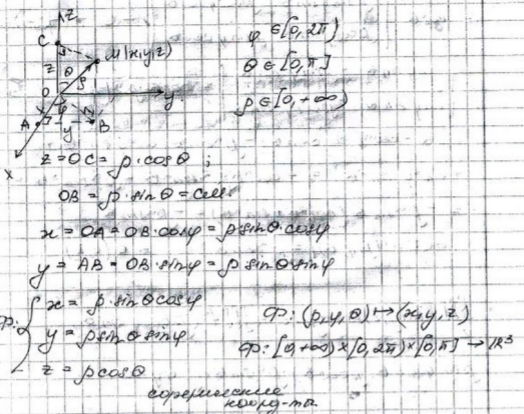 z
C
M(x,y,z)
z θ ρ
O φ y
A y B
x
φ ∈ [0, 2π)
θ ∈ [0, π]
ρ ∈ [0, +∞)
z = OC = ρ · cosθ ;
OB = ρ · sinθ = CM
x = OA = OB · cosφ = ρ sinθ · cosφ
y = AB = OB · sinφ = ρ sinθ sinφ
Ф: { x = ρ · sinθ cosφ
y = ρ sinθ sinφ
z = ρ cosθ
Ф: (ρ, φ, θ) ↦ (x, y, z)
Ф: [0, +∞) × [0, 2π) × [0, π] → ℝ³
сферические
коорд-ты